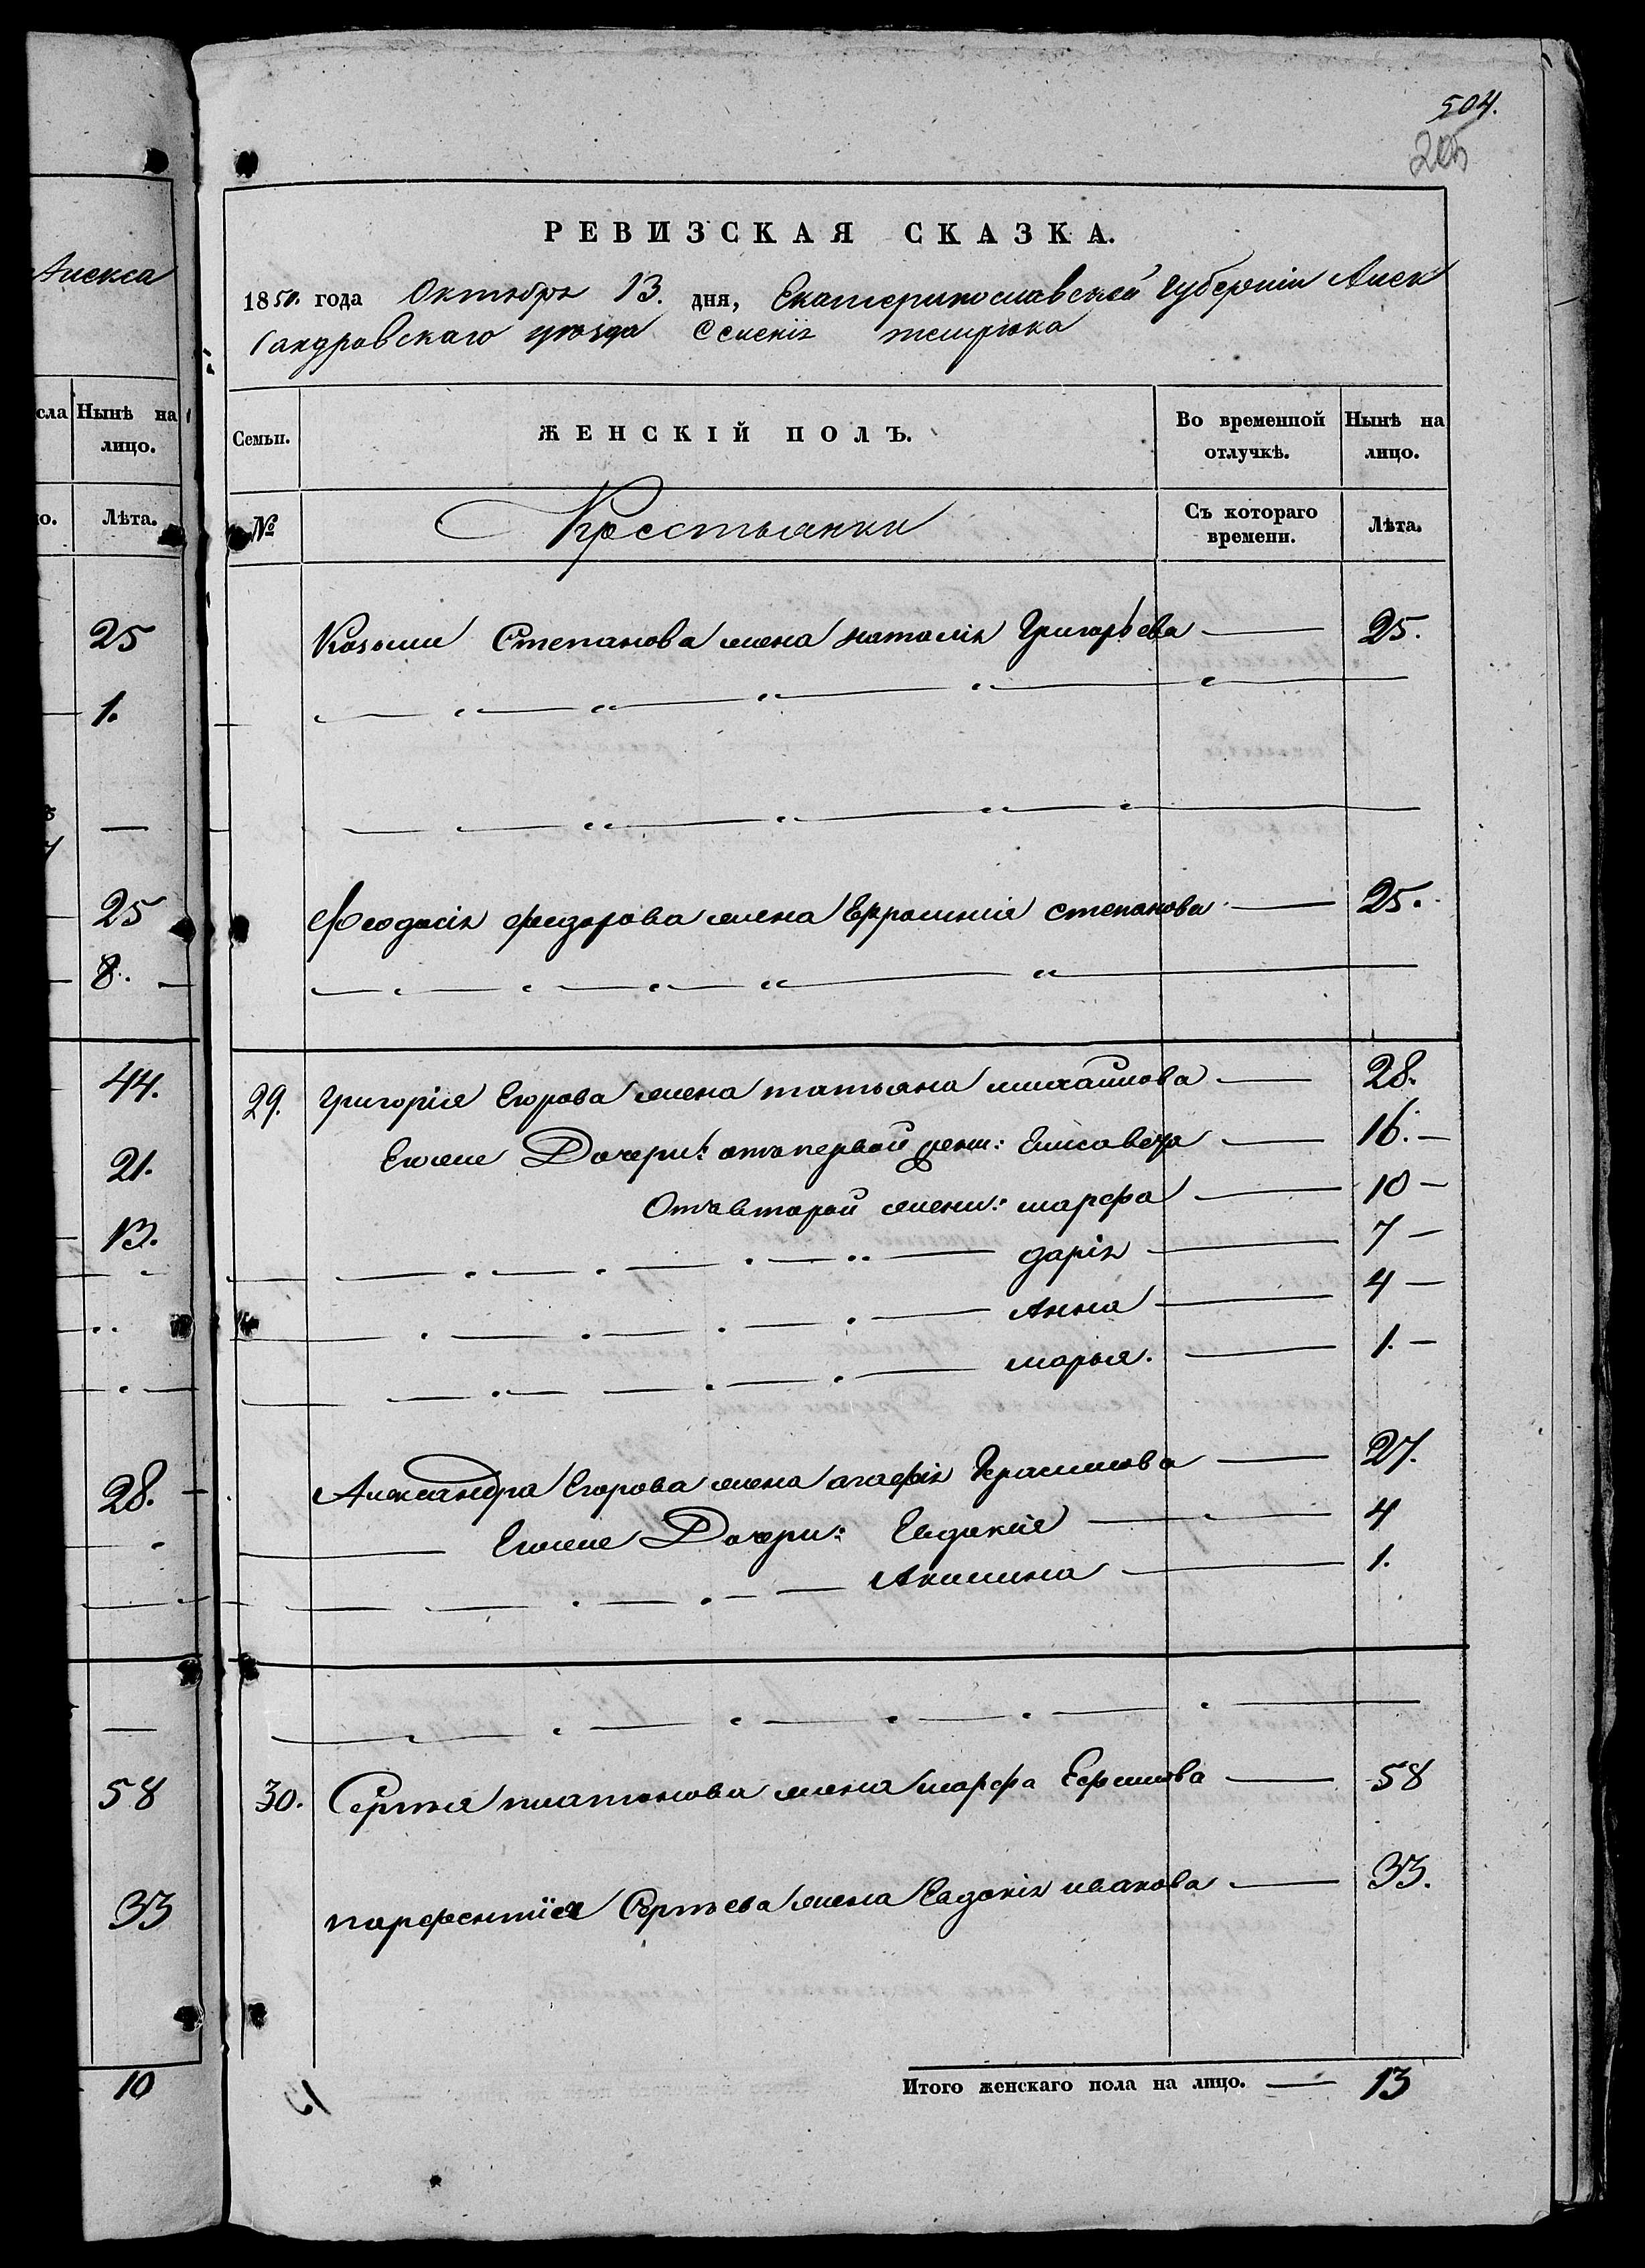 504.
205
Алекса
сла Нынѣ на
лицо.
о. Лѣта.
25
1.
25
8.
44.
21.
13.
28.
58
33
10
РЕВИЗСКАЯ СКАЗКА.
1850. года Октября 13. дня, Екатеринославской Губерніи Алек
сандровскаго уѣзда Селенія темрюка
Семьи. ЖЕНСКІЙ ПОЛЪ. Во временной отлучкѣ. Нынѣ на лицо.
№ Крестьянки Съ котораго времени. Лѣта.
Козьми Степанова жена наталія Григорьева 25.
Феодосія федорова жена Ефросинія степанова 25.
29. Григорія Егорова жена татьяна михайлова 28.
Егоже Дочери: отъ первой жены: Елисавета 16.
Отъ второй жены: марфа 10
дарія 7
Анна 4
марья. 1.
Александра Егорова жена агафія Герасимова 27.
Егоже Дочери: Евдокія 4
Акилина 1.
30. Сергѣя платонова жена марфа Ефимова 58
парфентія Сергѣева жена Евдокія иванова 33.
Итого женскаго пола на лицо. 13